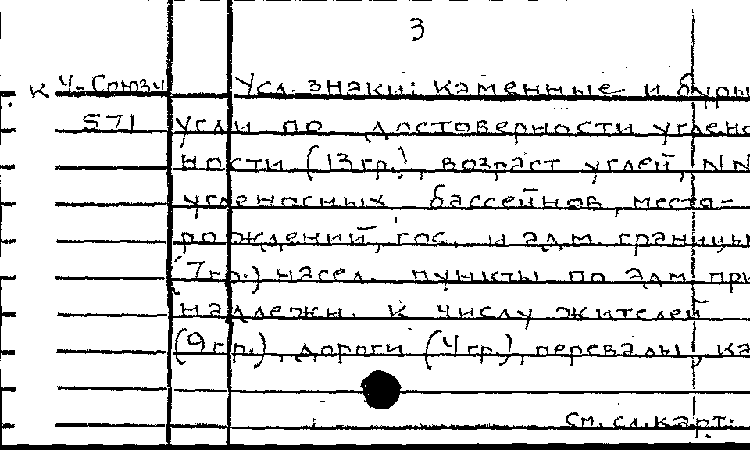 3
К У-Союзу Усл. знаки: каменные и бурые
571 угли по достоверности углено-
ности (13 гр.), возраст углей, NN
угленосных бассейнов, место-
рождений, гос. и адм. границы
(7 гр.) насел. пункты по адм. при-
надлежн. к числу жителей
(9 гр.), дороги (4 гр.), перевалы, ка
см. сл. карт.